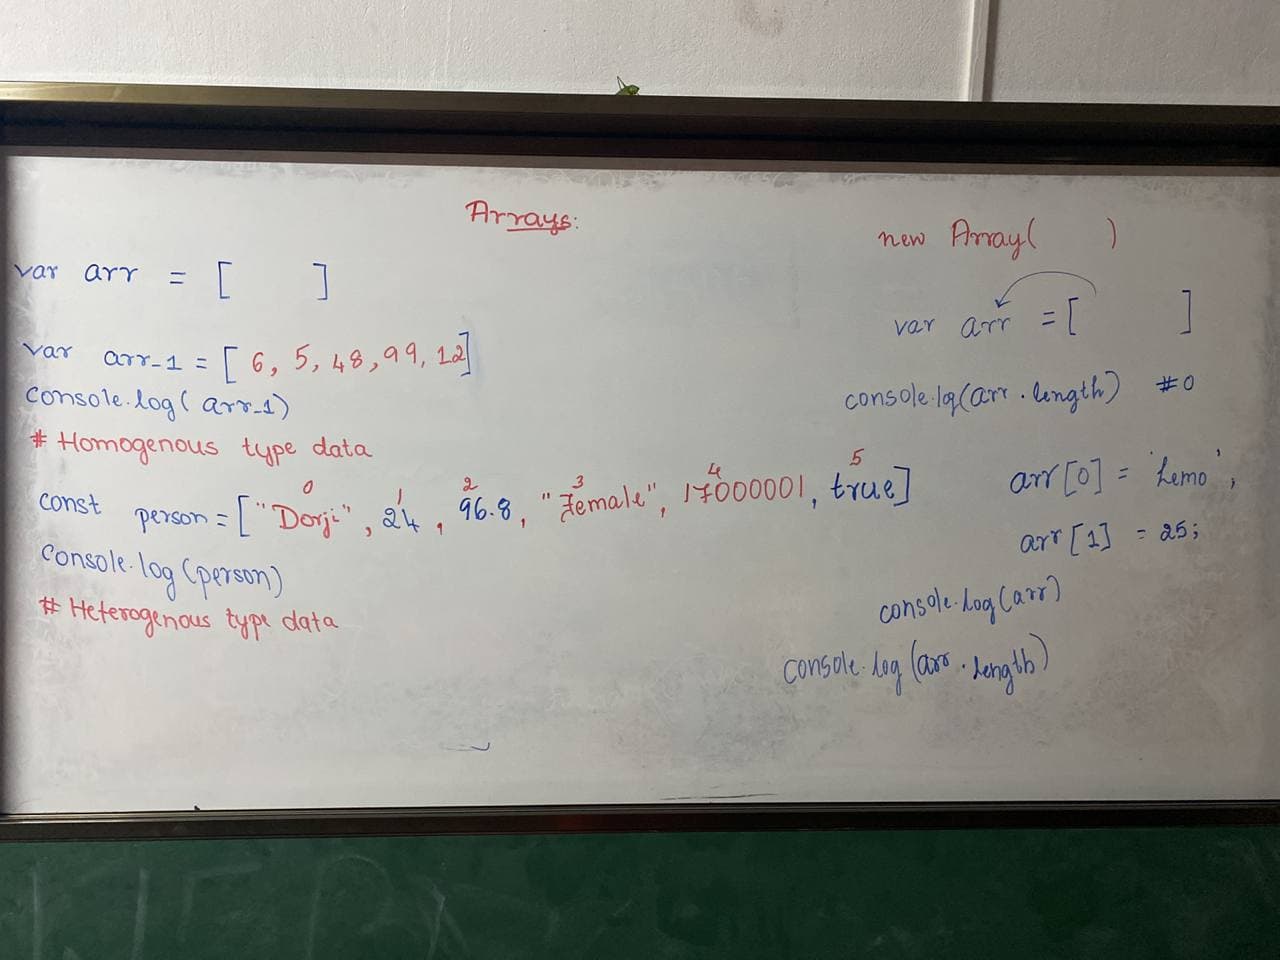 Arrays:
var arr = [ ]
var arr_1 = [ 6, 5, 48, 99, 12]
console.log( arr_1)
# Homogenous type data
0 1 2 3 4 5
const person = [ "Dorji", 24, 96.8, "Female", 17000001, true]
console.log(person)
# Heterogenous type data
new Array( )
var arr = [ ]
console.log(arr.length) #0
arr[0] = 'Lemo';
arr[1] = 25;
console.log(arr)
console.log(arr.length)